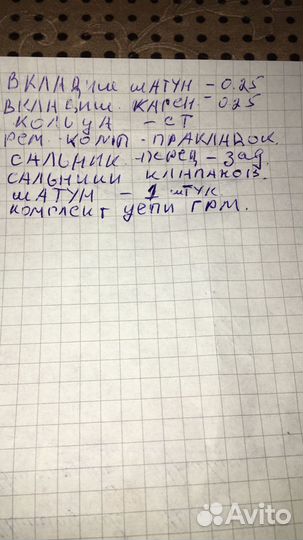 ВКЛАДИШ ШАТУН - 0.25
ВКЛАДИШ. КАРЕН - 0.25
КОЛЬЦА - СТ
РЕМ. КОМП. ПРАКЛАДОК.
САЛЬНИК - ПЕРЕД - ЗАД.
САЛЬНИКИ КЛАПАНОВ.
ШАТУН - 1 ШТУК
КОМПЛЕКТ ЦЕПИ ГРМ.
Avito